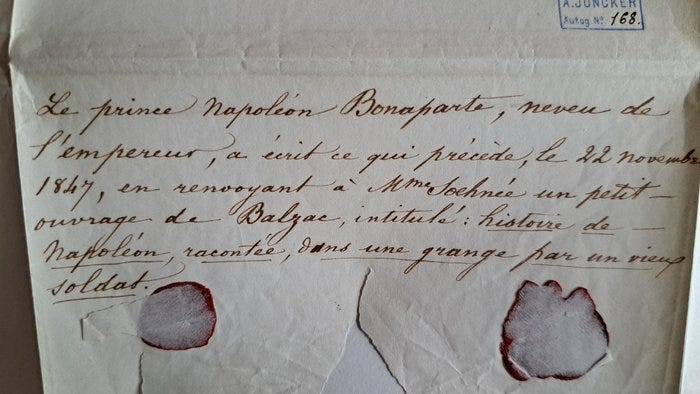 A. JUNCKER
Autog. No. 168.
Le prince Napoléon Bonaparte, neveu de
l'empereur, a écrit ce qui précède, le 22 novembre
1847, en renvoyant à Mme Soehnée un petit
ouvrage de Balzac, intitulé: histoire de
Napoléon, racontée, dans une grange par un vieux
soldat.